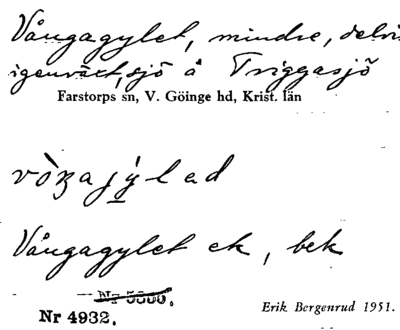 Vångagylet, mindre, delvis
igenväxt, sjö å Triggasjö
Farstorps sn, V. Göinge hd, Krist. län
vòŋajýlad
Vångagylet ek, bek
Nr 5000.
Nr 4932.
Erik Bergenrud 1951.